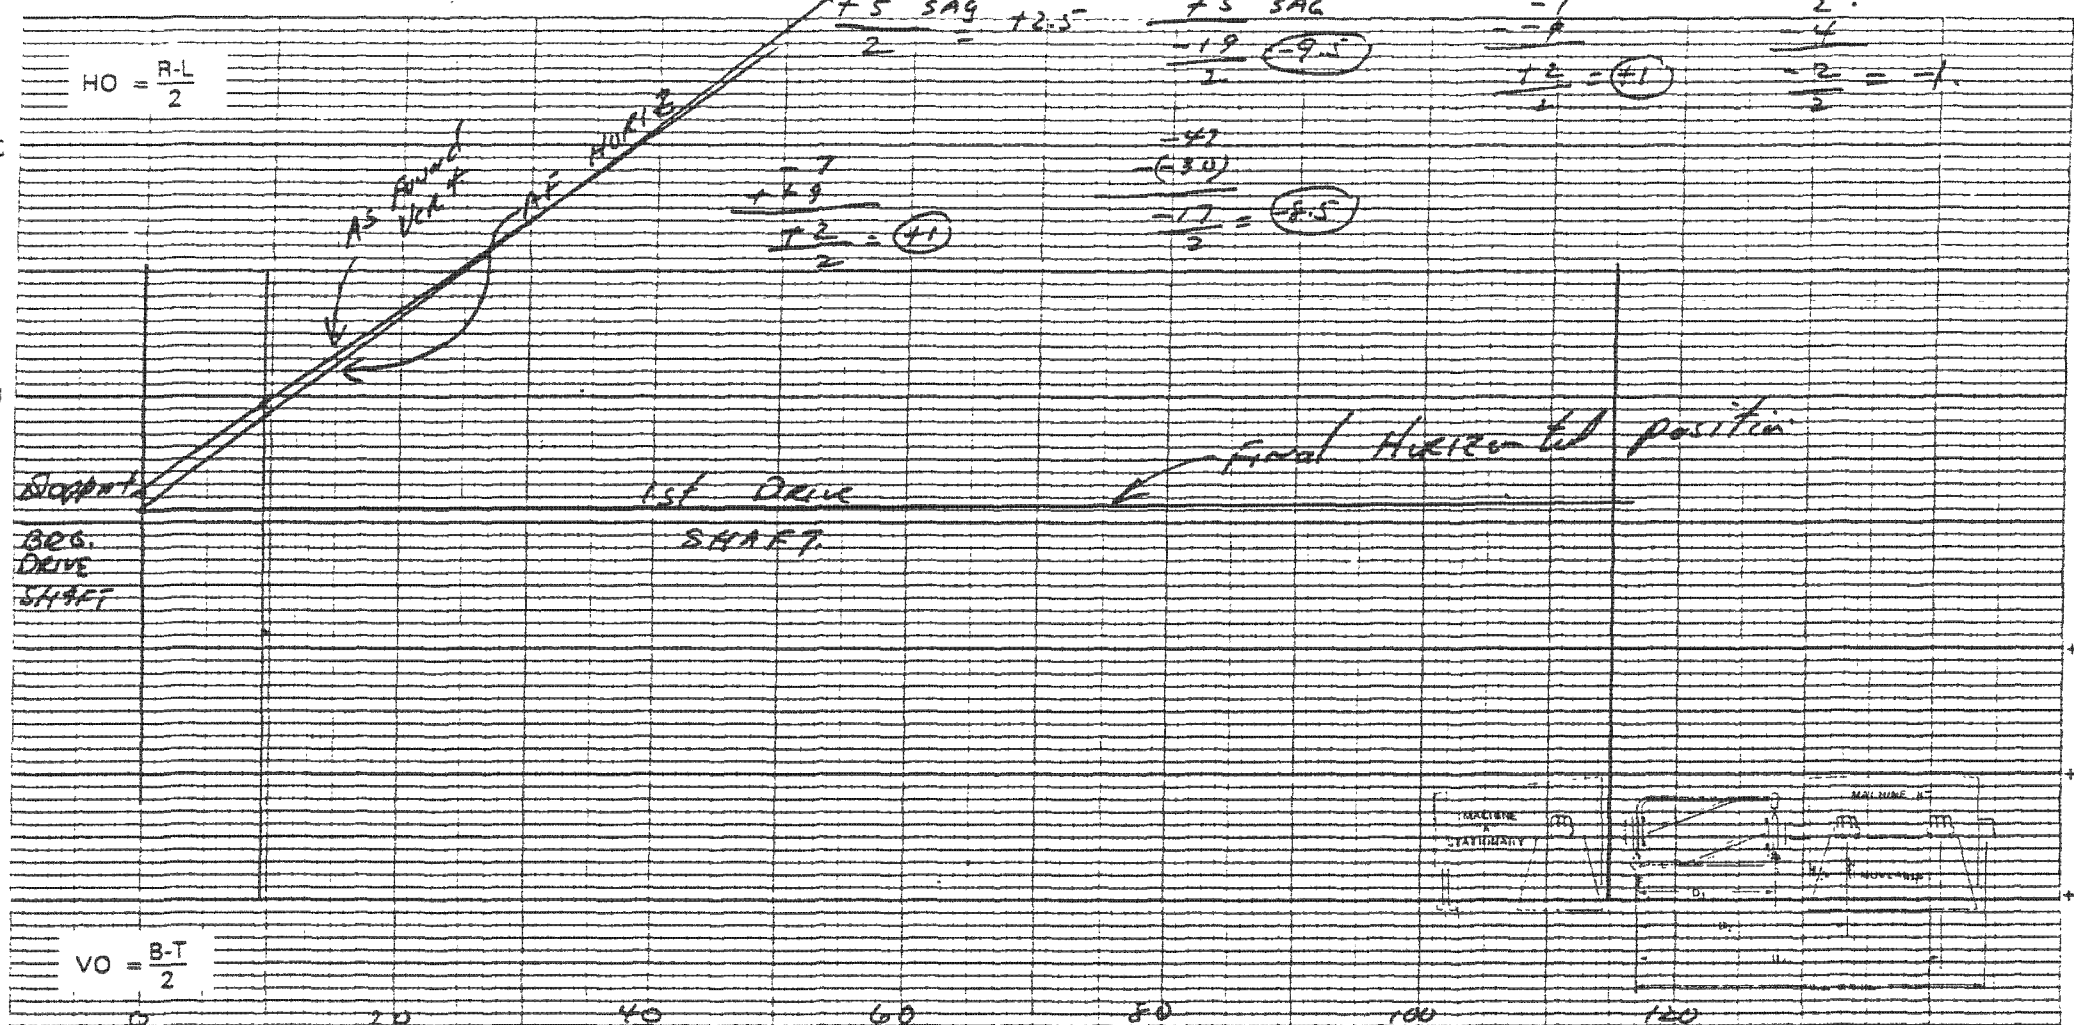 +5 SAG
2
= +2.5
+5 SAG
-19
2
-9.5
-4
-2
2
= -1.
HO = R-L
2
AS Found
Vert
AF HORIZ
-7
+2
2
= +1
-47
-(-30)
-17
2
= -8.5
+2
= +1
Final Horizontal position
1st Drive
SHAFT.
BRG.
DRIVE
SHAFT
MACHINE
STATIONARY
MACHINE
VO = B-T
2
0 20 40 60 80 100 120